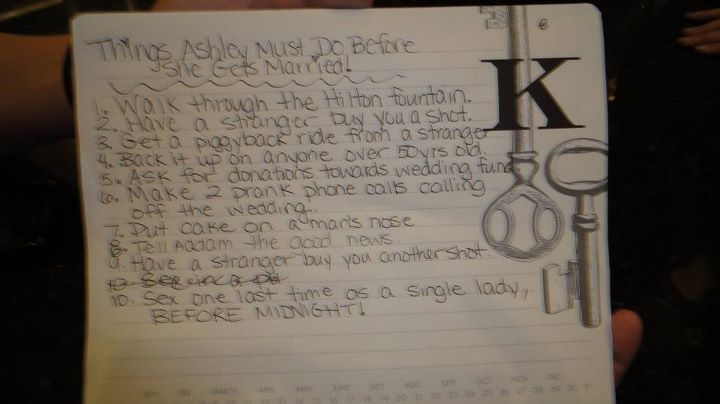 K
Things Ashley Must Do Before
She Gets Married!
1. Walk through the Hilton fountain.
2. Have a stranger buy you a shot.
3. Get a piggyback ride from a stranger
4. Back it up on anyone over 50yrs old.
5. Ask for donations towards wedding fund.
6. Make 2 prank phone calls calling
off the wedding.
7. Put cake on a man's nose
8. Tell Adaam the good news.
9. Have a stranger buy you another shot.
10.
10. Sex one last time as a single lady,
BEFORE MIDNIGHT!
JAN FEB MARCH APRIL MAY JUNE JULY AUG SEPT OCT NOV DEC